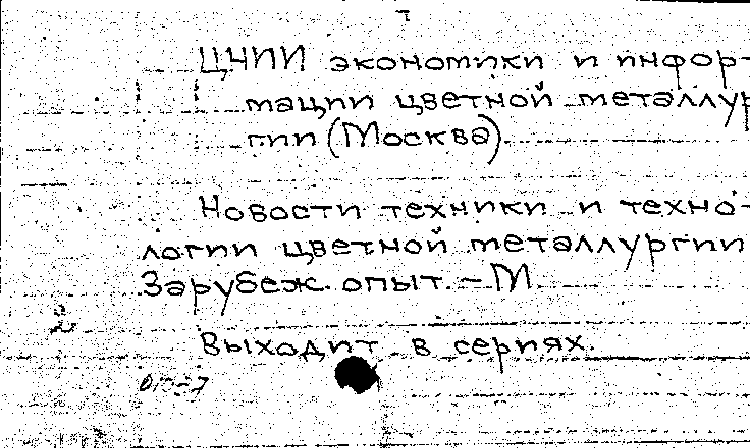 ЦНИИ экономики и инфор-
мации цветной металлур
гии (Москва).
Новости техники и техно-
логии цветной металлургии
Зарубеж. опыт. – М
Выходит в сериях.